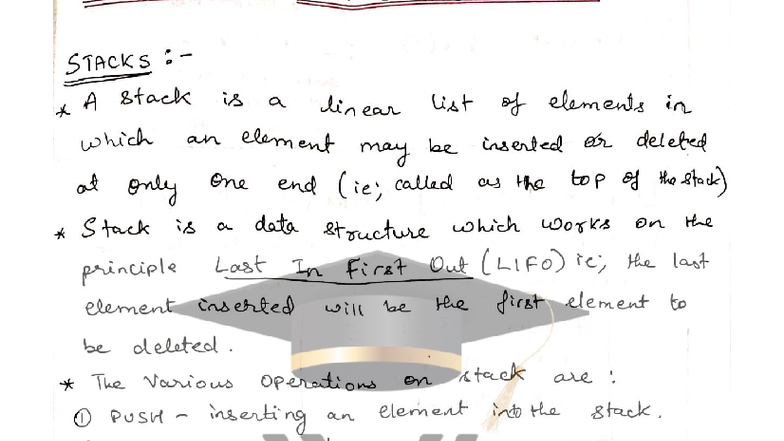 STACKS :-
* A stack is a linear list of elements in
which an element may be inserted or deleted
at only one end (ie; called as the top of the stack)
* Stack is a data structure which works on the
principle Last In First Out (LIFO) ie; the last
element inserted will be the first element to
be deleted.
* The Various Operations on stack are :
① PUSH - inserting an element into the stack.